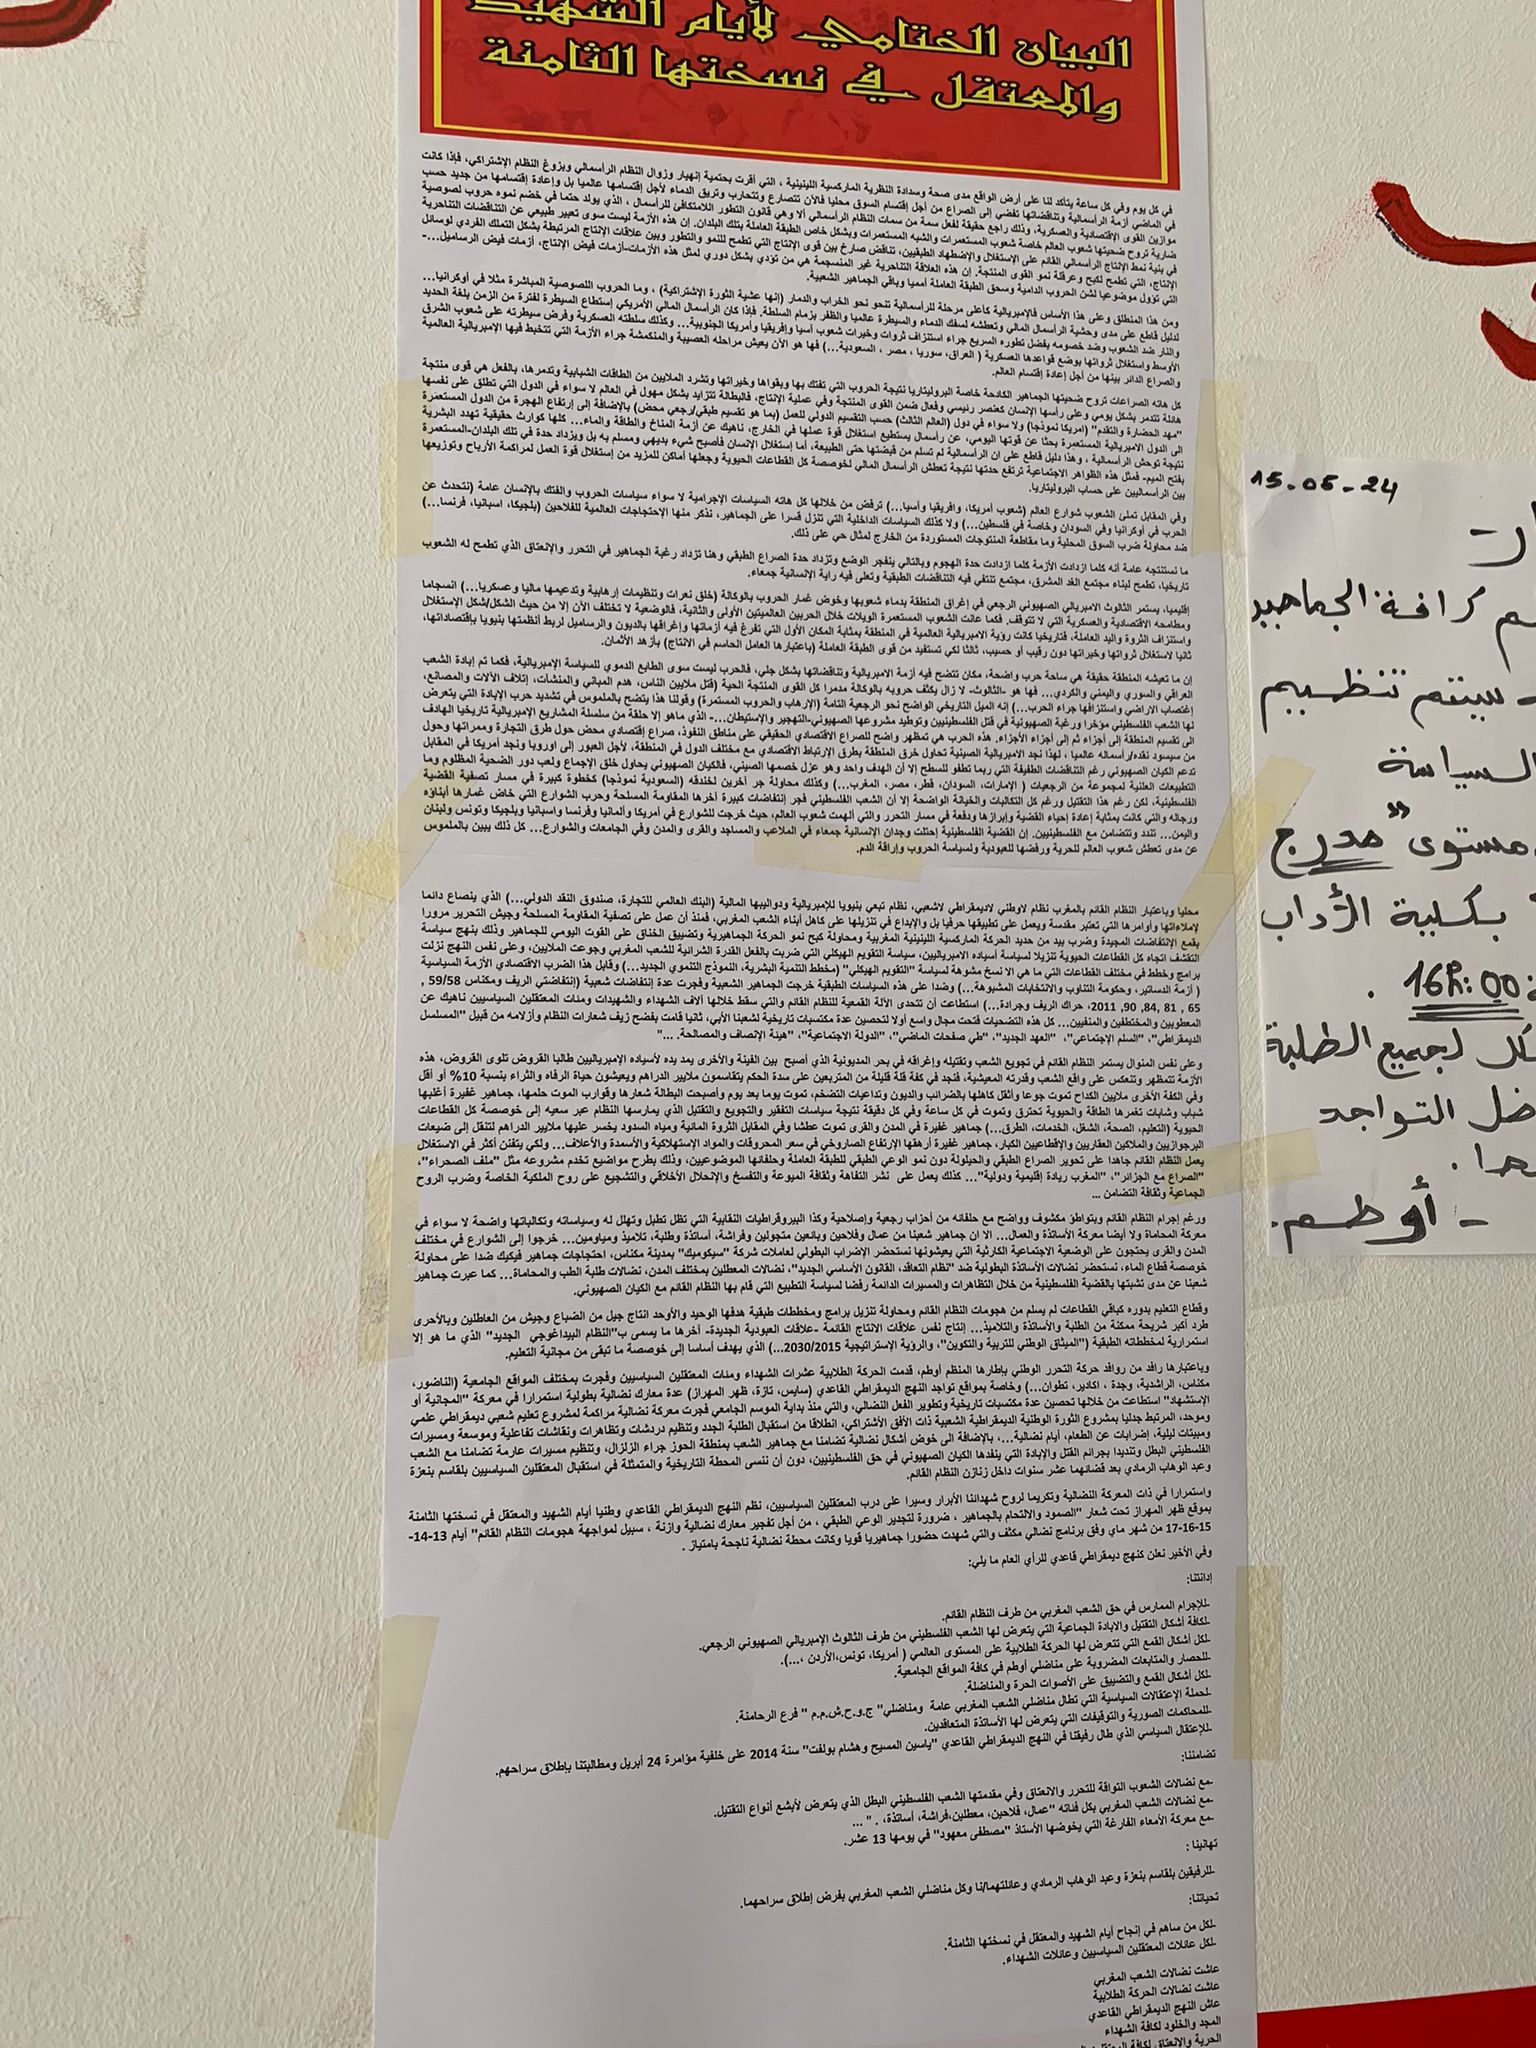 البيان الختامي لأيام الشهيد
والمعتقل في نسختها الثامنة
في كل يوم وفي كل ساعة يتأكد لنا على أرض الواقع مدى صحة وسدادة النظرية الماركسية اللينينية ، التي أقرت بحتمية إنهيار وزوال النظام الرأسمالي وبزوغ النظام الإشتراكي، فإذا كانت
في الماضي أزمة الرأسمالية وتناقضاتها تفضي إلى الصراع من أجل إقتسام السوق محليا فالآن تتصارع وتتحارب وتريق الدماء لأجل إقتسامها عالميا بل وإعادة إقتسامها من جديد حسب
موازين القوى الإقتصادية والعسكرية، وذلك راجع حقيقة لفعل سمة من سمات النظام الرأسمالي ألا وهي قانون التطور اللامتكافئ للرأسمال ، الذي يولد حتما في خضم نموه حروب لصوصية
ضارية تروح ضحيتها شعوب العالم خاصة شعوب المستعمرات والشبه المستعمرات وبشكل خاص الطبقة العاملة بتلك البلدان. إن هذه الأزمة ليست سوى تعبير طبيعي عن التناقضات التناحرية
في بنية نمط الإنتاج الرأسمالي القائم على الإستغلال والإضطهاد الطبقيين، تناقض صارخ بين قوى الإنتاج التي تطمح للنمو والتطور وبين علاقات الإنتاج المرتبطة بشكل التملك الفردي لوسائل
الإنتاج، التي تطمح لكبح وعرقلة نمو القوى المنتجة. إن هذه العلاقة التناحرية غير المنسجمة هي من تؤدي بشكل دوري لمثل هذه الأزمات-أزمات فيض الإنتاج، أزمات فيض الرساميل...-
التي تؤول موضوعيا لشن الحروب الدامية وسحق الطبقة العاملة أمميا وباقي الجماهير الشعبية.
ومن هذا المنطلق وعلى هذا الأساس فالإمبريالية كأعلى مرحلة للرأسمالية تنحو نحو الخراب والدمار (إنها عشية الثورة الإشتراكية) ، وما الحروب اللصوصية المباشرة مثلا في أوكرانيا...
لدليل قاطع على مدى وحشية الرأسمال المالي وتعطشه لسفك الدماء والسيطرة عالميا والظفر بزمام السلطة. فإذا كان الرأسمال المالي الأمريكي إستطاع السيطرة لفترة من الزمن بلغة الحديد
والنار ضد الشعوب وضد خصومه بفضل تطوره السريع جراء استنزاف ثروات وخيرات شعوب آسيا وإفريقيا وأمريكا الجنوبية... وكذلك سلطته العسكرية وفرض سيطرته على شعوب الشرق
الأوسط واستغلال ثرواتها بوضع قواعدها العسكرية ( العراق، سوريا ، مصر ، السعودية...) فها هو الآن يعيش مراحله العصيبة والمنكمشة جراء الأزمة التي تتخبط فيها الإمبريالية العالمية
والصراع الدائر بينها من أجل إعادة إقتسام العالم.
كل هاته الصراعات تروح ضحيتها الجماهير الكادحة خاصة البروليتاريا نتيجة الحروب التي تفتك بها وبقواها وخيراتها وتشرد الملايين من الطاقات الشبابية وتدمرها، بالفعل هي قوى منتجة
هائلة تتدمر بشكل يومي وعلى رأسها الإنسان كعنصر رئيسي وفعال ضمن القوى المنتجة وفي عملية الإنتاج، فالبطالة تتزايد بشكل مهول في العالم لا سواء في الدول التي تطلق على نفسها
"مهد الحضارة والتقدم" (امريكا نموذجا) ولا سواء في دول (العالم الثالث) حسب التقسيم الدولي للعمل (بما هو تقسيم طبقي/رجعي محض) بالإضافة إلى إرتفاع الهجرة من الدول المستعمَرة
الى الدول الامبريالية المستعمِرة بحثا عن قوتها اليومي، عن رأسمال يستطيع استغلال قوة عملها في الخارج، ناهيك عن أزمة المناخ والطاقة والماء... كلها كوارث حقيقية تهدد البشرية
نتيجة توحش الرأسمالية ، وهذا دليل قاطع على ان الرأسمالية لم تسلم من قبضتها حتى الطبيعة، أما إستغلال الإنسان فأصبح شيء بديهي ومسلم به بل ويزداد حدة في تلك البلدان-المستعمرة
بفتح الميم- فمثل هذه الظواهر الاجتماعية ترتفع حدتها نتيجة تعطش الرأسمال المالي لخوصصة كل القطاعات الحيوية وجعلها أماكن للمزيد من إستغلال قوة العمل لمراكمة الأرباح وتوزيعها
بين الرأسماليين على حساب البروليتاريا.
وفي المقابل تملئ الشعوب شوارع العالم (شعوب أمريكا، وافريقيا وآسيا...) ترفض من خلالها كل هاته السياسات الإجرامية لا سواء سياسات الحروب والفتك بالإنسان عامة (نتحدث عن
الحرب في أوكرانيا وفي السودان وخاصة في فلسطين...) ولا كذلك السياسات الداخلية التي تنزل قسرا على الجماهير، نذكر منها الإحتجاجات العالمية للفلاحين (بلجيكا، اسبانيا، فرنسا...)
ضد محاولة ضرب السوق المحلية وما مقاطعة المنتوجات المستوردة من الخارج لمثال حي على ذلك.
ما نستنتجه عامة أنه كلما ازدادت الأزمة كلما ازدادت حدة الهجوم وبالتالي ينفجر الوضع وتزداد حدة الصراع الطبقي وهنا تزداد رغبة الجماهير في التحرر والإنعتاق الذي تطمح له الشعوب
تاريخيا، تطمح لبناء مجتمع الغد المشرق، مجتمع تنتفي فيه التناقضات الطبقية وتعلى فيه راية الإنسانية جمعاء.
إقليميا، يستمر الثالوث الامبريالي الصهيوني الرجعي في إغراق المنطقة بدماء شعوبها وخوض غمار الحروب بالوكالة (خلق نعرات وتنظيمات إرهابية وتدعيمها ماليا وعسكريا...) انسجاما
ومطامحه الاقتصادية والعسكرية التي لا تتوقف. فكما عانت الشعوب المستعمرة الويلات خلال الحربين العالميتين الأولى والثانية، فالوضعية لا تختلف الآن إلا من حيث الشكل/شكل الإستغلال
واستنزاف الثروة واليد العاملة، فتاريخيا كانت رؤية الامبريالية العالمية في المنطقة بمثابة المكان الأول التي تفرغ فيه أزماتها وإغراقها بالديون والرساميل لربط أنظمتها بنيويا بإقتصاداتها،
ثانيا لاستغلال ثرواتها وخيراتها دون رقيب أو حسيب، ثالثا لكي تستفيد من قوى الطبقة العاملة (باعتبارها العامل الحاسم في الانتاج) بأزهد الأثمان.
إن ما تعيشه المنطقة حقيقة هي ساحة حرب واضحة، مكان تتضح فيه أزمة الامبريالية وتناقضاتها بشكل جلي، فالحرب ليست سوى الطابع الدموي للسياسة الإمبريالية، فكما تم إبادة الشعب
العراقي والسوري واليمني والكردي... فها هو -الثالوث- لا زال يكثف حروبه بالوكالة مدمرا كل القوى المنتجة الحية (قتل ملايين الناس، هدم المباني والمنشآت، إتلاف الآلات والمصانع،
إغتصاب الاراضي واستنزافها جراء الحرب...) إنه الميل التاريخي الواضح نحو الرجعية التامة (الإرهاب والحروب المستمرة) وقولنا هذا يتضح بالملموس في تشديد حرب الإبادة التي يتعرض
لها الشعب الفلسطيني مؤخرا ورغبة الصهيونية في قتل الفلسطينيين وتوطيد مشروعها الصهيوني-التهجير والإستيطان...- الذي ماهو إلا حلقة من سلسلة المشاريع الإمبريالية تاريخيا الهادف
الى تقسيم المنطقة إلى أجزاء ثم إلى أجزاء الأجزاء. هذه الحرب هي تمظهر واضح للصراع الاقتصادي الحقيقي على مناطق النفوذ، صراع إقتصادي محض حول طرق التجارة وممراتها وحول
من سيسود نقده/رأسماله عالميا ، لهذا نجد الامبريالية الصينية تحاول خرق المنطقة بطرق الإرتباط الاقتصادي مع مختلف الدول في المنطقة، لأجل العبور إلى اوروبا ونجد أمريكا في المقابل
تدعم الكيان الصهيوني رغم التناقضات الطفيفة التي ربما تطفو للسطح إلا أن الهدف واحد وهو عزل خصمها الصيني، فالكيان الصهيوني يحاول خلق الإجماع ولعب دور الضحية المظلوم وما
التطبيعات العلنية لمجموعة من الرجعيات ( الإمارات، السودان، قطر، مصر، المغرب...) وكذلك محاولة جر آخرين لخندقه (السعودية نموذجا) كخطوة كبيرة في مسار تصفية القضية
الفلسطينية، لكن رغم هذا التقتيل ورغم كل التكالبات والخيانة الواضحة إلا أن الشعب الفلسطيني فجر إنتفاضات كبيرة آخرها المقاومة المسلحة وحرب الشوارع التي خاض غمارها أبناؤه
ورجاله والتي كانت بمثابة إعادة إحياء القضية وإبرازها ودفعة في مسار التحرر والتي ألهمت شعوب العالم، حيث خرجت للشوارع في أمريكا وألمانيا وفرنسا واسبانيا وبلجيكا وتونس ولبنان
واليمن... تندد وتتضامن مع الفلسطينيين. إن القضية الفلسطينية إحتلت وجدان الإنسانية جمعاء في الملاعب والمساجد والقرى والمدن وفي الجامعات والشوارع... كل ذلك يبين بالملموس
عن مدى تعطش شعوب العالم للحرية ورفضها للعبودية ولسياسة الحروب وإراقة الدم.
محليا وباعتبار النظام القائم بالمغرب نظام لاوطني لاديمقراطي لاشعبي، نظام تبعي بنيويا للإمبريالية ودواليبها المالية (البنك العالمي للتجارة، صندوق النقد الدولي...) الذي ينصاع دائما
لإملاءاتها وأوامرها التي تعتبر مقدسة ويعمل على تطبيقها حرفيا بل والإبداع في تنزيلها على كاهل أبناء الشعب المغربي، فمنذ أن عمل على تصفية المقاومة المسلحة وجيش التحرير مرورا
بقمع الإنتفاضات المجيدة وضرب بيد من حديد الحركة الماركسية اللينينية المغربية ومحاولة كبح نمو الحركة الجماهيرية وتضييق الخناق على القوت اليومي للجماهير وذلك بنهج سياسة
التقشف اتجاه كل القطاعات الحيوية تنزيلا لسياسة أسياده الامبرياليين، سياسة التقويم الهيكلي التي ضربت بالفعل القدرة الشرائية للشعب المغربي وجوعت الملايين، وعلى نفس النهج نزلت
برامج وخطط في مختلف القطاعات التي ما هي الا نسخ مشوهة لسياسة "التقويم الهيكلي" (مخطط التنمية البشرية، النموذج التنموي الجديد...) وقابل هذا الضرب الاقتصادي الأزمة السياسية
( أزمة الدساتير، وحكومة التناوب والانتخابات المشبوهة...) وضدا على هذه السياسات الطبقية خرجت الجماهير الشعبية وفجرت عدة إنتفاضات شعبية (إنتفاضتي الريف ومكناس 59/58 ,
65 , 81 ,84 ,90 ,2011، حراك الريف وجرادة...) استطاعت أن تتحدى الآلة القمعية للنظام القائم والتي سقط خلالها آلاف الشهداء والشهيدات ومئات المعتقلين السياسيين ناهيك عن
المعطوبين والمختطفين والمنفيين... كل هذه التضحيات فتحت مجال واسع أولا لتحصين عدة مكتسبات تاريخية لشعبنا الأبي، ثانيا قامت بفضح زيف شعارات النظام وأزلامه من قبيل "المسلسل
الديمقراطي"، "السلم الإجتماعي"، "العهد الجديد"، "طي صفحات الماضي"، "الدولة الاجتماعية"، "هيئة الإنصاف والمصالحة. ..."
وعلى نفس المنوال يستمر النظام القائم في تجويع الشعب وتقتيله وإغراقه في بحر المديونية الذي أصبح بين الفينة والأخرى يمد يده لأسياده الإمبرياليين طالبا القروض تلوى القروض، هذه
الأزمة تتمظهر وتنعكس على واقع الشعب وقدرته المعيشية، فنجد في كفة قلة قليلة من المتربعين على سدة الحكم يتقاسمون ملايير الدراهم ويعيشون حياة الرفاه والثراء بنسبة 10% أو أقل
وفي الكفة الأخرى ملايين الكداح تموت جوعا وأثقل كاهلها بالضرائب والديون وتداعيات التضخم، تموت يوما بعد يوم وأصبحت البطالة شعارها وقوارب الموت حلمها، جماهير غفيرة أغلبها
شباب وشابات تغمرها الطاقة والحيوية تحترق وتموت في كل ساعة وفي كل دقيقة نتيجة سياسات التفقير والتجويع والتقتيل الذي يمارسها النظام عبر سعيه إلى خوصصة كل القطاعات
الحيوية (التعليم، الصحة، الشغل، الخدمات، الطرق...) جماهير غفيرة في المدن والقرى تموت عطشا وفي المقابل الثروة المائية ومياه السدود يخسر عليها ملايير الدراهم لتنقل إلى ضيعات
البرجوازيين والملاكين العقاريين والإقطاعيين الكبار، جماهير غفيرة أرهقها الإرتفاع الصاروخي في سعر المحروقات والمواد الإستهلاكية والأسمدة والأعلاف... ولكي يتفنن أكثر في الاستغلال
يعمل النظام القائم جاهدا على تحوير الصراع الطبقي والحيلولة دون نمو الوعي الطبقي للطبقة العاملة وحلفائها الموضوعيين، وذلك بطرح مواضيع تخدم مشروعه مثل "ملف الصحراء"،
"الصراع مع الجزائر"، "المغرب ريادة إقليمية ودولية"... كذلك يعمل على نشر التفاهة وثقافة الميوعة والتفسخ والإنحلال الأخلاقي والتشجيع على روح الملكية الخاصة وضرب الروح
الجماعية وثقافة التضامن ...
ورغم إجرام النظام القائم وبتواطؤ مكشوف وواضح مع حلفائه من أحزاب رجعية وإصلاحية وكذا البيروقراطيات النقابية التي تظل تطبل وتهلل له ولسياساته وتكالباتها واضحة لا سواء في
معركة المحاماة ولا أيضا معركة الأساتذة والعمال... الا ان جماهير شعبنا من عمال وفلاحين وبائعين متجولين وفراشة، أساتذة وطلبة، تلاميذ ومياومين... خرجوا إلى الشوارع في مختلف
المدن والقرى يحتجون على الوضعية الاجتماعية الكارثية التي يعيشونها نستحضر الإضراب البطولي لعاملات شركة "سيكوميك" بمدينة مكناس، احتجاجات جماهير فيكيك ضدا على محاولة
خوصصة قطاع الماء، نستحضر نضالات الأساتذة البطولية ضد "نظام التعاقد، القانون الأساسي الجديد"، نضالات المعطلين بمختلف المدن، نضالات طلبة الطب والمحاماة... كما عبرت جماهير
شعبنا عن مدى تشبثها بالقضية الفلسطينية من خلال التظاهرات والمسيرات الدائمة رفضا لسياسة التطبيع التي قام بها النظام القائم مع الكيان الصهيوني.
وقطاع التعليم بدوره كباقي القطاعات لم يسلم من هجومات النظام القائم ومحاولة تنزيل برامج ومخططات طبقية هدفها الوحيد والأوحد انتاج جيل من الضباع وجيش من العاطلين وبالأحرى
طرد أكبر شريحة ممكنة من الطلبة والأساتذة والتلاميذ... إنتاج نفس علاقات الانتاج القائمة -علاقات العبودية الجديدة- آخرها ما يسمى ب"النظام البيداغوجي الجديد" الذي ما هو إلا
استمرارية لمخططاته الطبقية ("الميثاق الوطني للتربية والتكوين"، والرؤية الإستراتيجية 2030/2015...) الذي يهدف أساسا إلى خوصصة ما تبقى من مجانية التعليم.
وباعتبارها رافد من روافد حركة التحرر الوطني بإطارها المنظم أوطم، قدمت الحركة الطلابية عشرات الشهداء ومئات المعتقلين السياسيين وفجرت بمختلف المواقع الجامعية (الناضور،
مكناس، الراشدية، وجدة ، اكادير، تطوان...) وخاصة بمواقع تواجد النهج الديمقراطي القاعدي (سايس، تازة، ظهر المهراز) عدة معارك نضالية بطولية استمرارا في معركة "المجانية أو
الإستشهاد" استطاعت من خلالها تحصين عدة مكتسبات تاريخية وتطوير الفعل النضالي، والتي منذ بداية الموسم الجامعي فجرت معركة نضالية مراكمة لمشروع تعليم شعبي ديمقراطي علمي
وموحد، المرتبط جدليا بمشروع الثورة الوطنية الديمقراطية الشعبية ذات الأفق الأشتراكي، انطلاقا من استقبال الطلبة الجدد وتنظيم دردشات وتظاهرات ونقاشات تفاعلية وموسعة ومسيرات
ومبيتات ليلية، إضرابات عن الطعام، أيام نضالية...، بالإضافة الى خوض أشكال نضالية تضامنا مع جماهير الشعب بمنطقة الحوز جراء الزلزال، وتنظيم مسيرات عارمة تضامنا مع الشعب
الفلسطيني البطل وتنديدا بجرائم القتل والإبادة التي ينفدها الكيان الصهيوني في حق الفلسطينيين، دون أن ننسى المحطة التاريخية والمتمثلة في استقبال المعتقلين السياسيين بلقاسم بنعزة
وعبد الوهاب الرمادي بعد قضائهما عشر سنوات داخل زنازن النظام القائم.
واستمرارا في ذات المعركة النضالية وتكريما لروح شهدائنا الأبرار وسيرا على درب المعتقلين السياسيين، نظم النهج الديمقراطي القاعدي وطنيا أيام الشهيد والمعتقل في نسختها الثامنة
بموقع ظهر المهراز تحت شعار "الصمود والالتحام بالجماهير ، ضرورة لتجدير الوعي الطبقي ، من أجل تفجير معارك نضالية وازنة ، سبيل لمواجهة هجومات النظام القائم" أيام 13-14-
15-16-17 من شهر ماي وفق برنامج نضالي مكثف والتي شهدت حضورا جماهيريا قويا وكانت محطة نضالية ناجحة بامتياز .
وفي الأخير نعلن كنهج ديمقراطي قاعدي للرأي العام ما يلي:
إدانتنا:
-للإجرام الممارس في حق الشعب المغربي من طرف النظام القائم.
-لكافة أشكال التقتيل والابادة الجماعية التي يتعرض لها الشعب الفلسطيني من طرف الثالوث الإمبريالي الصهيوني الرجعي.
-لكل أشكال القمع التي تتعرض لها الحركة الطلابية على المستوى العالمي ( أمريكا، تونس،الأردن ،...).
-للحصار والمتابعات المضروبة على مناضلي أوطم في كافة المواقع الجامعية.
-لكل أشكال القمع والتضييق على الأصوات الحرة والمناضلة.
-لحملة الإعتقالات السياسية التي تطال مناضلي الشعب المغربي عامة ومناضلي" ج.و.ح.ش.م.م " فرع الرحامنة.
-للمحاكمات الصورية والتوقيفات التي يتعرض لها الأساتذة المتعاقدين.
-للإعتقال السياسي الذي طال رفيقنا في النهج الديمقراطي القاعدي "ياسين المسيح وهشام بولفت" سنة 2014 على خلفية مؤامرة 24 أبريل ومطالبتنا بإطلاق سراحهم.
تضامننا:
-مع نضالات الشعوب التواقة للتحرر والانعتاق وفي مقدمتها الشعب الفلسطيني البطل الذي يتعرض لأبشع أنواع التقتيل.
-مع نضالات الشعب المغربي بكل فئاته "عمال، فلاحين، معطلين،فراشة، أساتذة، . " ...
-مع معركة الأمعاء الفارغة التي يخوضها الأستاذ "مصطفى معهود" في يومها 13 عشر.
تهانينا :
-للرفيقين بلقاسم بنعزة وعبد الوهاب الرمادي وعائلتهما/نا وكل مناضلي الشعب المغربي بفرض إطلاق سراحهما.
تحياتنا:
-لكل من ساهم في إنجاح أيام الشهيد والمعتقل في نسختها الثامنة.
-لكل عائلات المعتقلين السياسيين وعائلات الشهداء.
عاشت نضالات الشعب المغربي
عاشت نضالات الحركة الطلابية
عاش النهج الديمقراطي القاعدي
المجد والخلود لكافة الشهداء
الحرية والإنعتاق لكافة
15-05-24
كافة الجماهير
سيتم تنظيم
السياسة
مستوى "مدرج
بكلية الآداب
16h:00 .
لجميع الطلبة
التواجد
- أوطم.